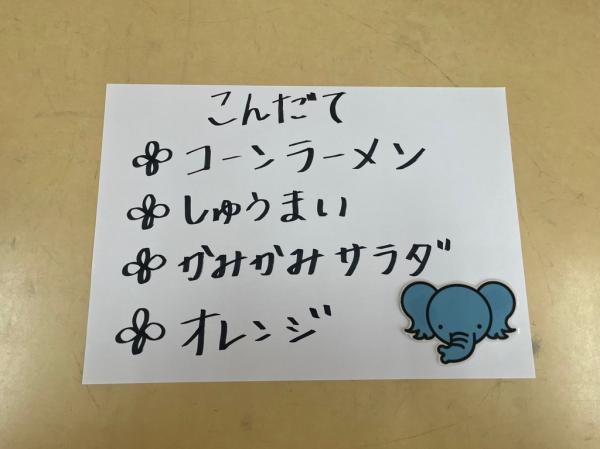 こんだて
コーンラーメン
しゅうまい
かみかみサラダ
オレンジ